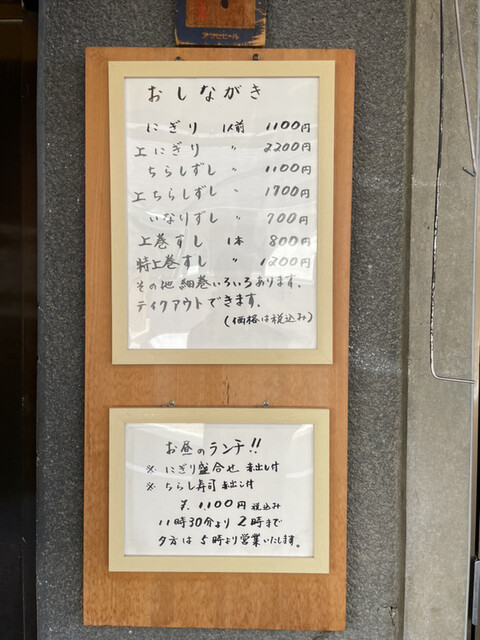 アサヒビール
おしながき
にぎり 1人前 1100円
上にぎり 〃 2200円
ちらしずし 〃 1100円
上ちらしずし 〃 1700円
いなりずし 〃 700円
上巻すし 1本 800円
特上巻すし 〃 1200円
その他細巻いろいろあります.
テイクアウトできます.
(価格は税込み)
お昼のランチ!!
※ にぎり盛合せ 赤出し付
※ ちらし寿司 赤出し付
¥.1,100円 税込み
11時30分より2時まで
夕方は5時より営業いたします。